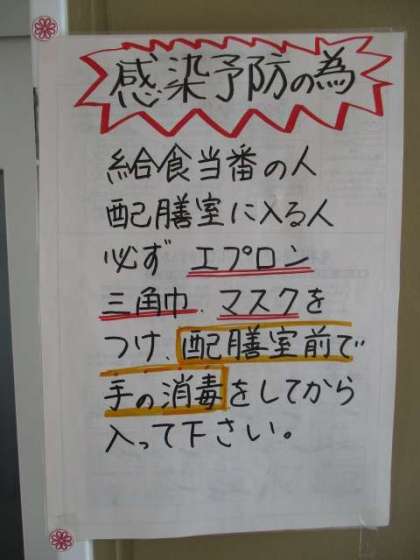 感染予防の為
給食当番の人
配膳室に入る人
必ず エプロン
三角巾、マスクを
つけ、配膳室前で
手の消毒をしてから
入って下さい。